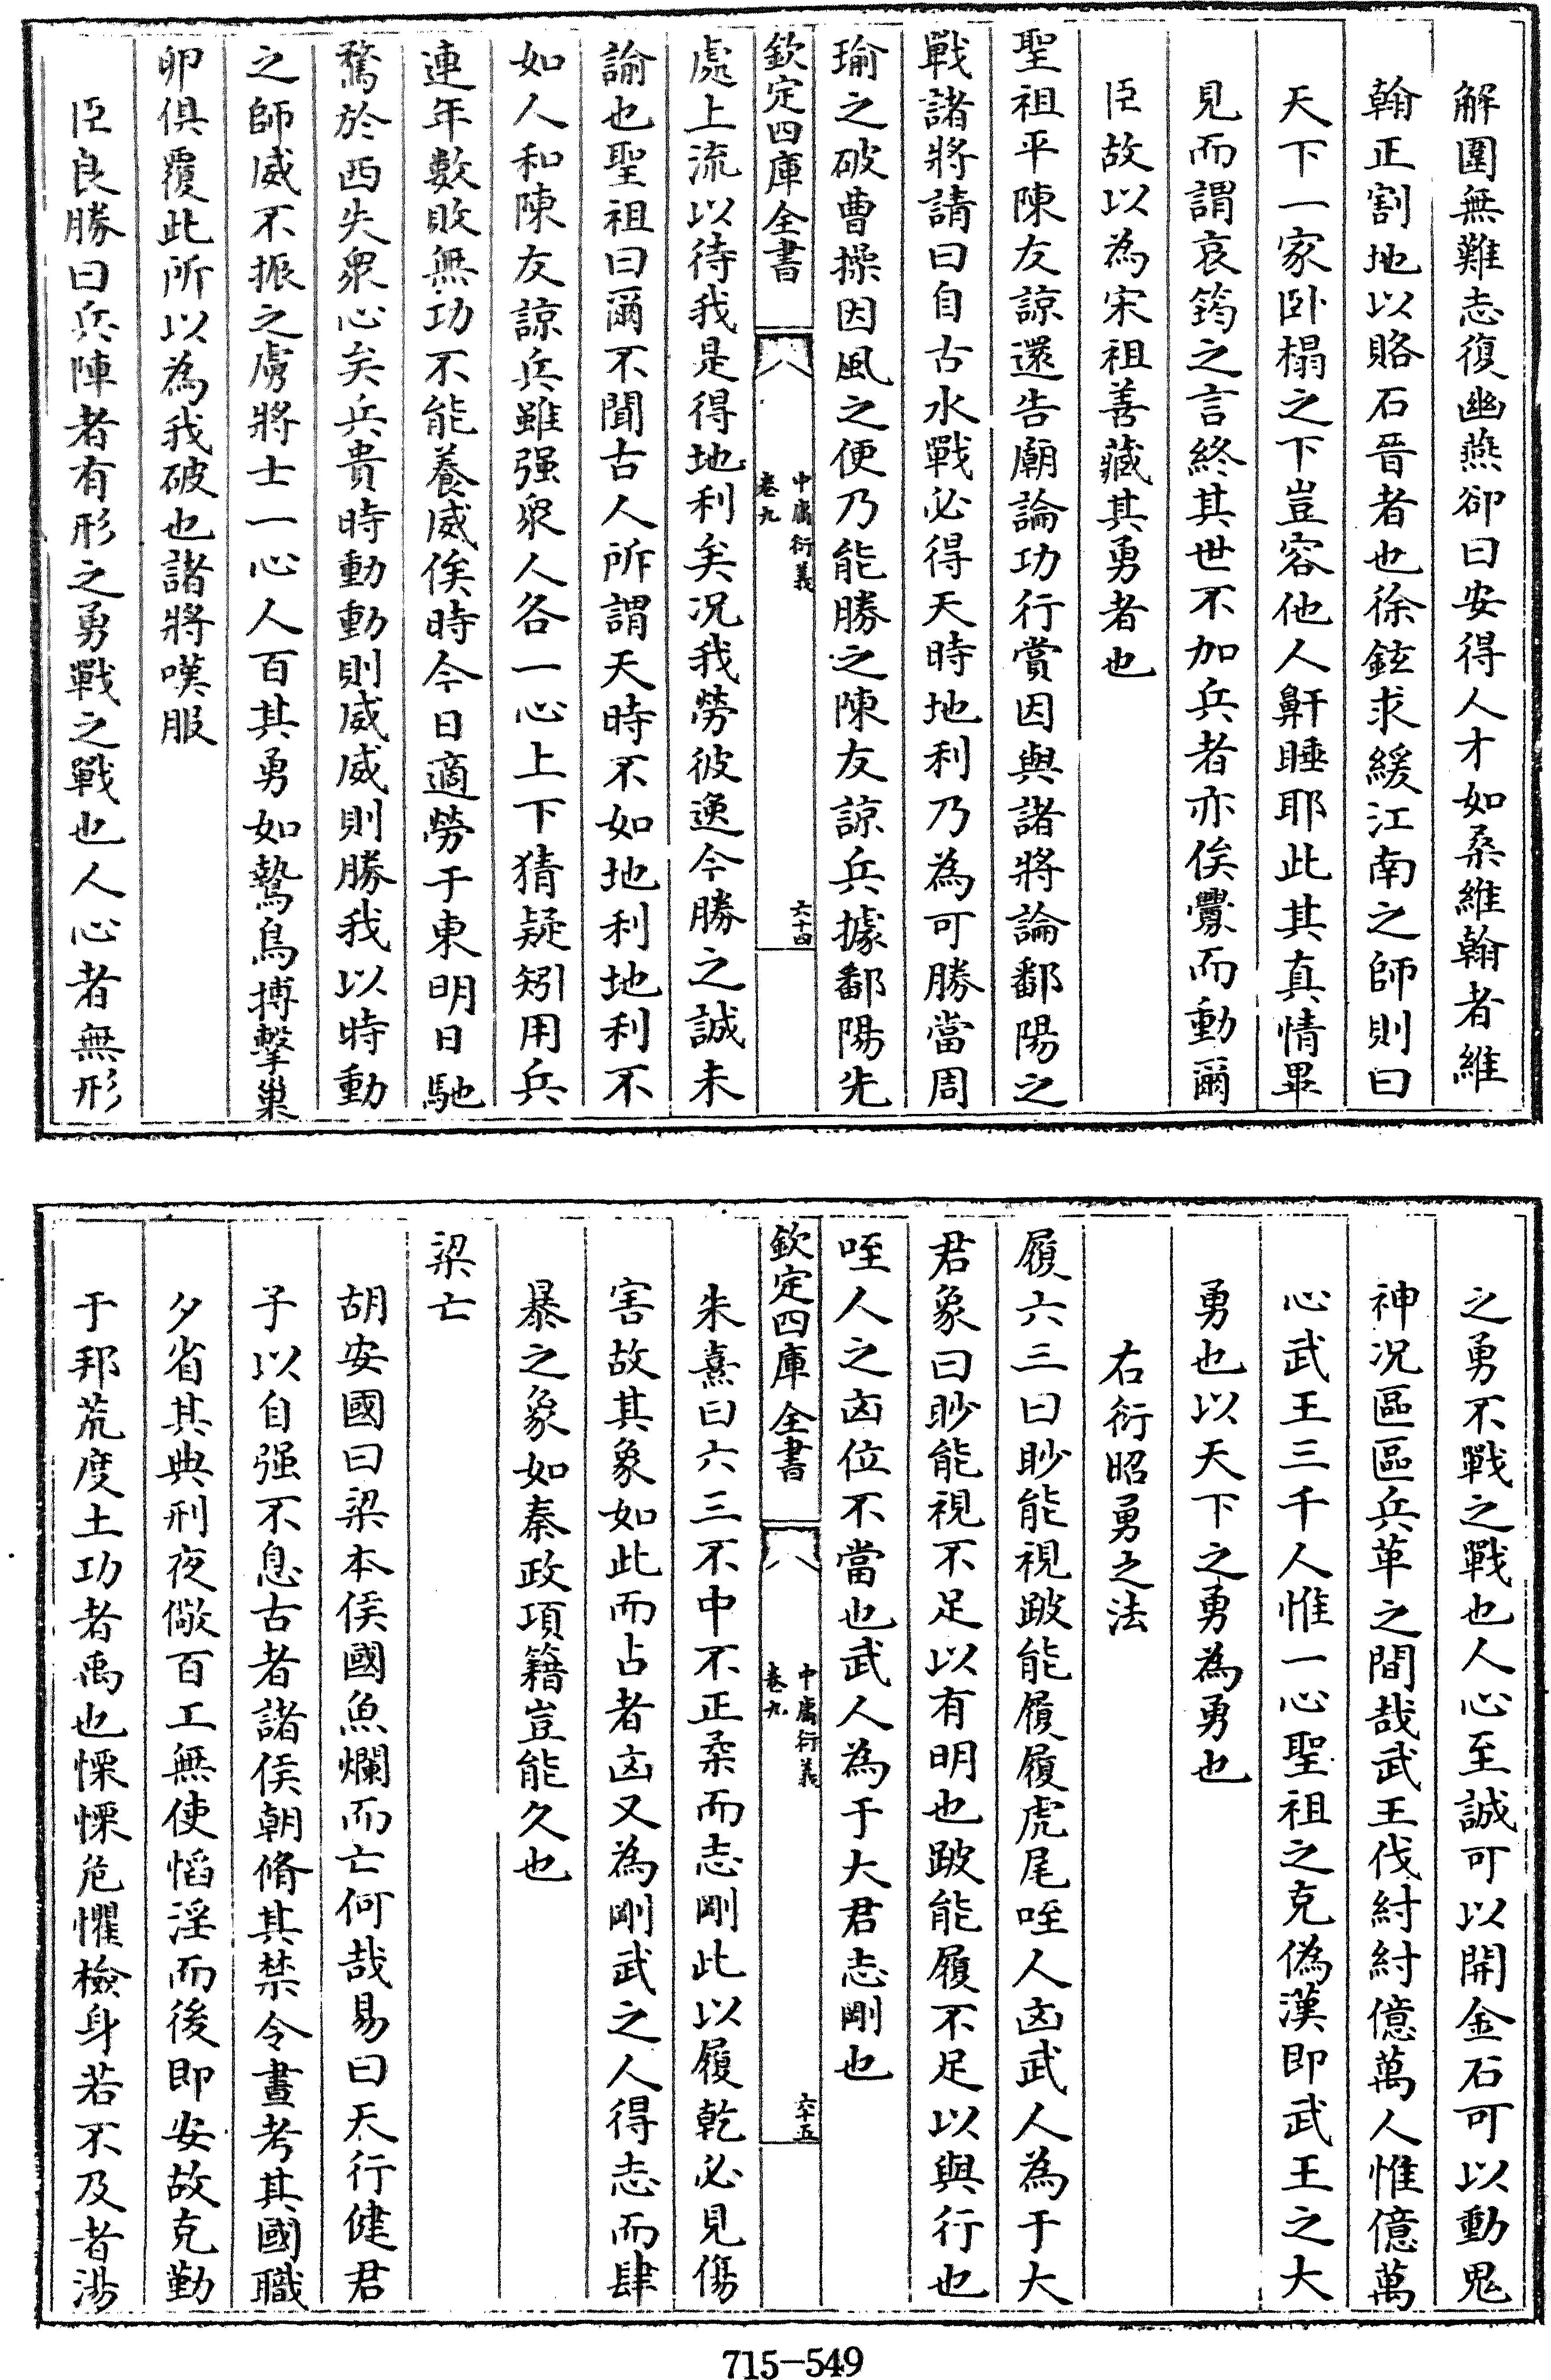 解圍無難志復幽燕卻曰安得人才如桑維翰者維
翰正割地以賂石晉者也徐鉉求緩江南之師則曰
天下一家卧榻之下豈容他人鼾睡耶此其真情畢
見而謂哀筠之言終其世不加兵者亦俟釁而動爾
臣故以為宋祖善藏其勇者也
聖祖平陳友諒還告廟論功行賞因與諸將論鄱陽之
戰諸將請曰自古水戰必得天時地利乃為可勝當周
瑜之破曹操因風之便乃能勝之陳友諒兵據鄱陽先
欽定四庫全書
中庸衍義
卷九
六十四
處上流以待我是得地利矣况我勞彼逸今勝之誠未
諭也聖祖曰爾不聞古人所謂天時不如地利地利不
如人和陳友諒兵雖强衆人各一心上下猜疑矧用兵
連年數敗無功不能養威俟時今日適勞于東明日馳
騖於西失衆心矣兵貴時動動則威威則勝我以時動
之師威不振之虜將士一心人百其勇如鷙鳥搏擊巢
卵俱覆此所以為我破也諸將嘆服
臣良勝曰兵陣者有形之勇戰之戰也人心者無形
之勇不戰之戰也人心至誠可以開金石可以動鬼
神况區區兵革之間哉武王伐紂紂億萬人惟億萬
心武王三千人惟一心聖祖之克偽漢即武王之大
勇也以天下之勇為勇也
右衍昭勇之法
履六三曰眇能視跛能履履虎尾咥人凶武人為于大
君象曰眇能視不足以有明也跛能履不足以與行也
咥人之凶位不當也武人為于大君志剛也
欽定四庫全書
中庸衍義
卷九
六十五
朱熹曰六三不中不正柔而志剛此以履乾必見傷
害故其象如此而占者凶又為剛武之人得志而肆
暴之象如秦政項籍豈能久也
梁亡
胡安國曰梁本侯國魚爛而亡何哉易曰天行健君
子以自强不息古者諸侯朝脩其禁令晝考其國職
夕省其典刑夜儆百工無使慆淫而後即安故克勤
于邦荒度土功者禹也慄慄危懼檢身若不及者湯
715-549